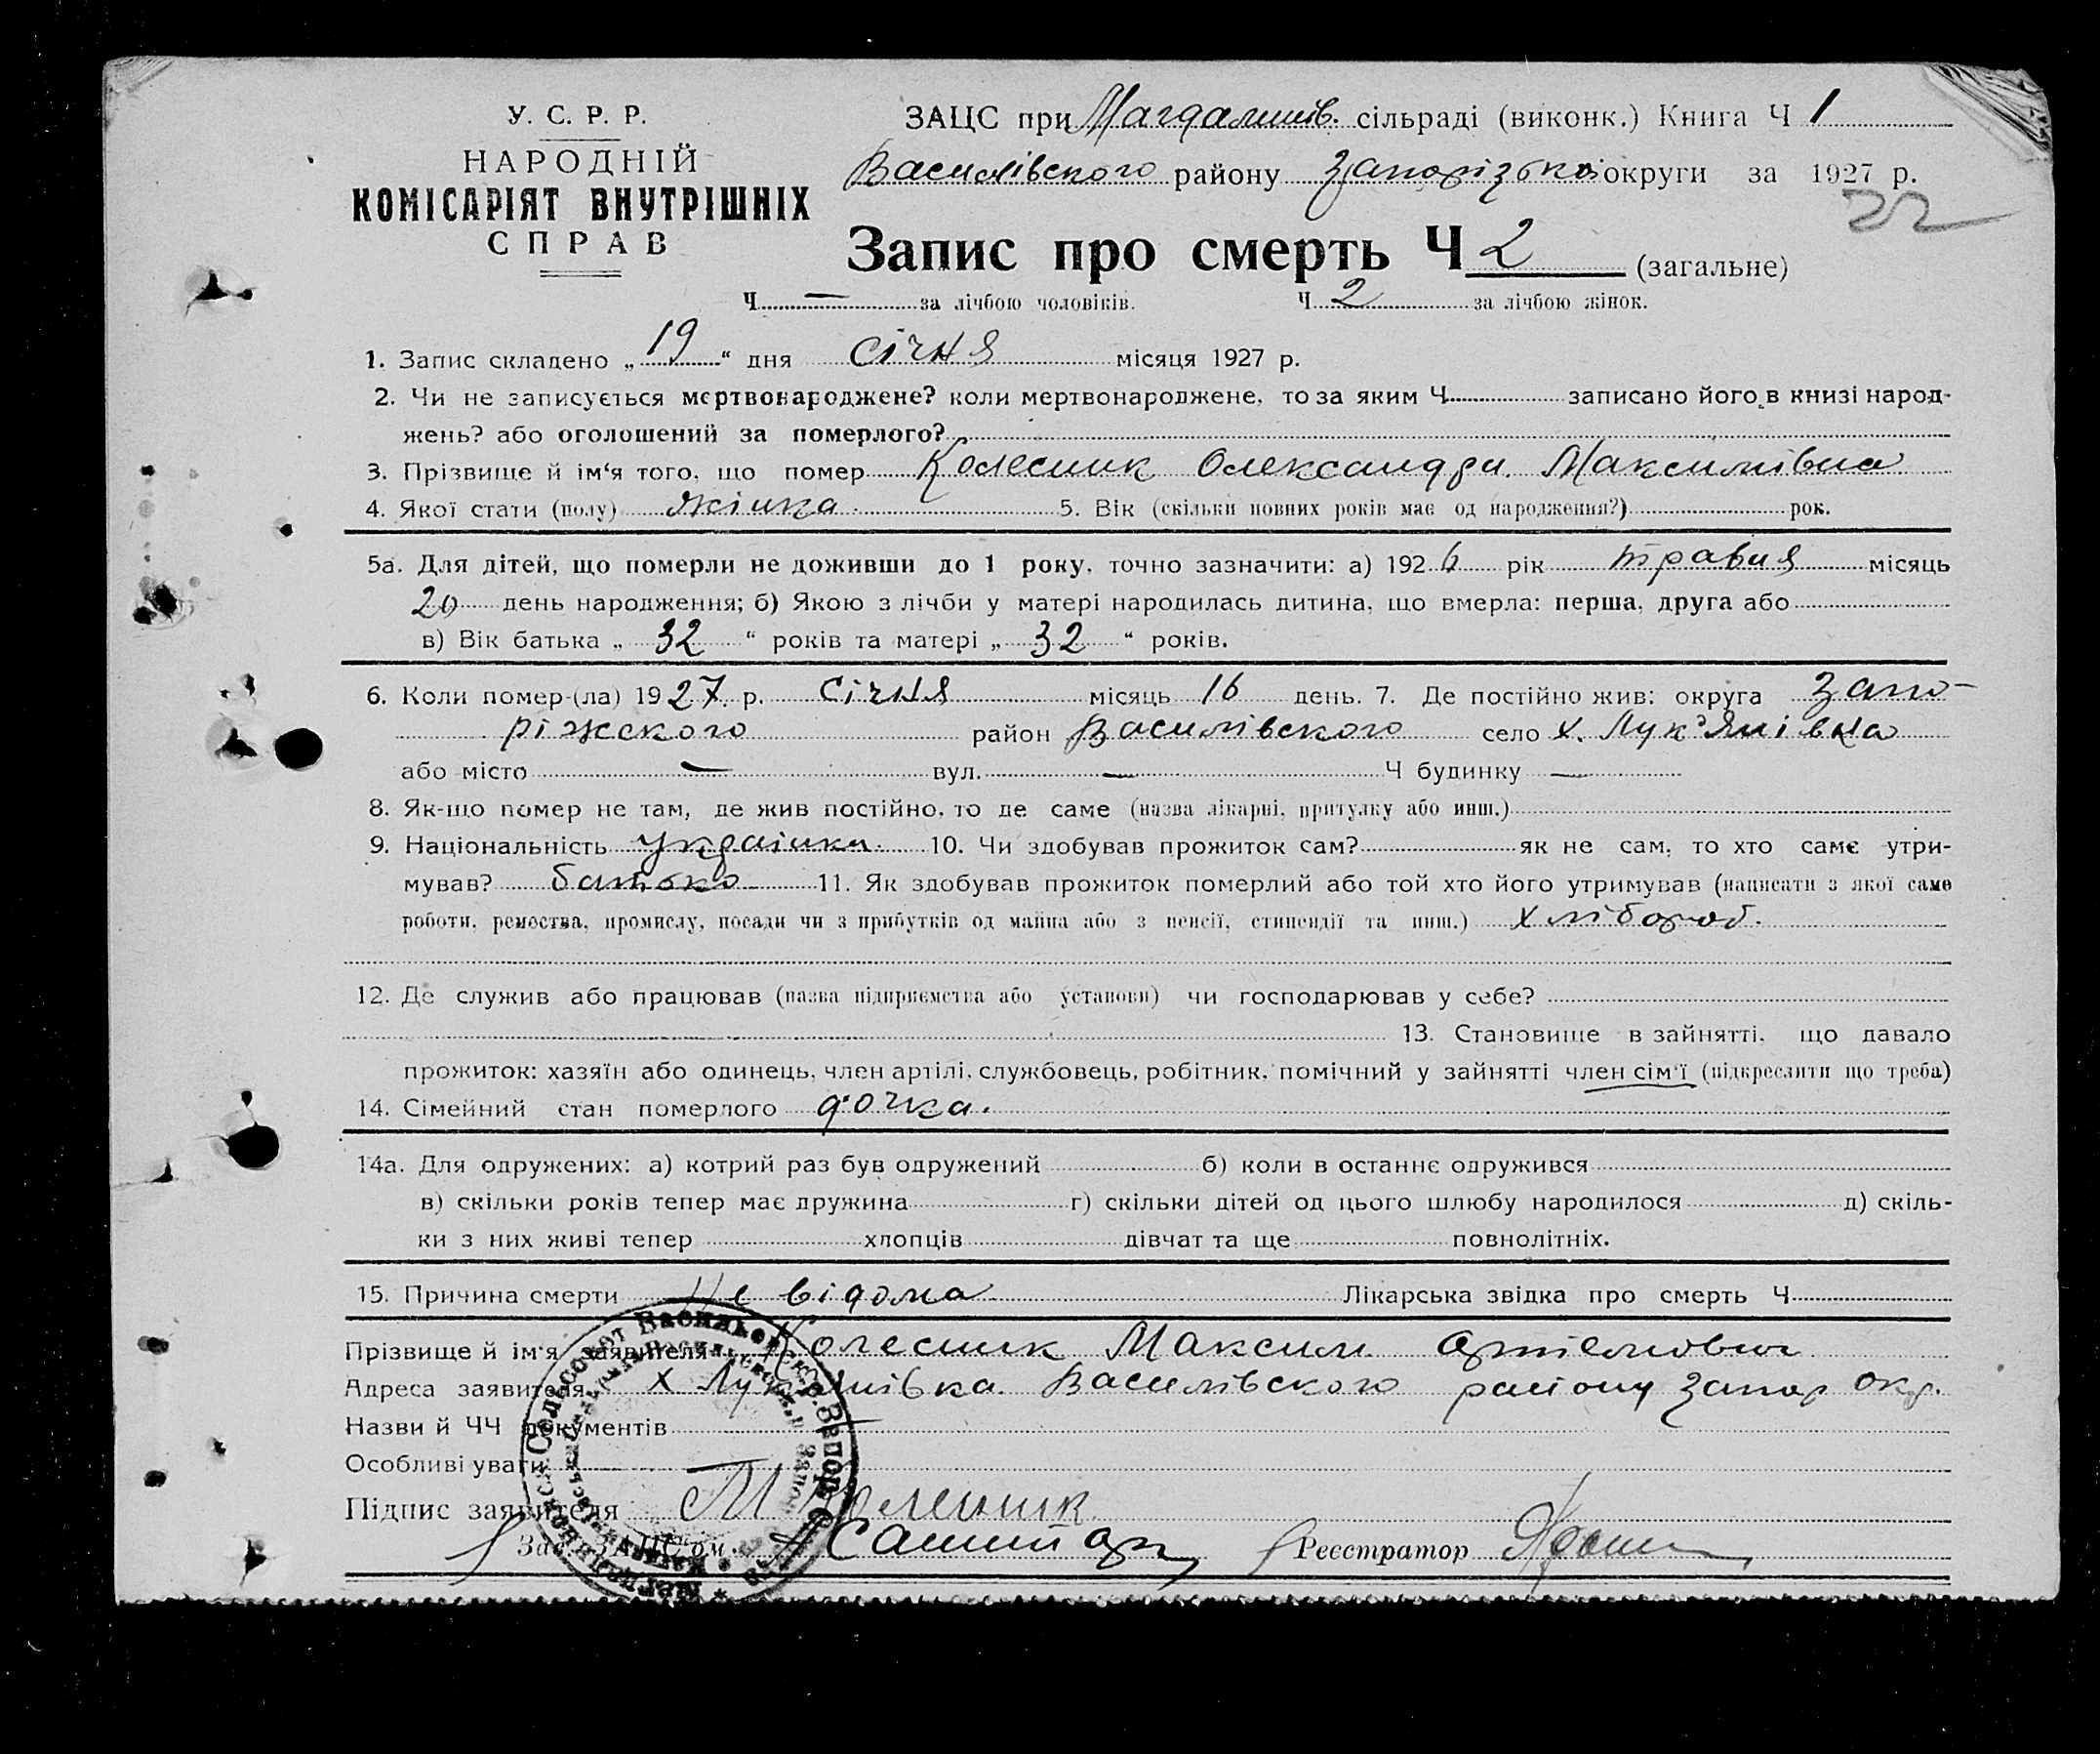 У. С. Р. Р.
НАРОДНІЙ
КОМІСАРІЯТ ВНУТРІШНІХ
СПРАВ
ЗАЦС при Магдалинів. сільраді (виконк.) Книга Ч 1
Василівского району Запорізької округи за 1927 р.
22
Запис про смерть Ч 2 (загальне)
Ч — за лічбою чоловіків. Ч 2 за лічбою жінок.
1. Запис складено „ 19 “ дня січня місяця 1927 р.
2. Чи не записується мертвонароджене? коли мертвонароджене, то за яким Ч записано його в книзі народ-
жень? або оголошений за померлого?
3. Прізвище й ім‘я того, що помер Колесник Олександра Максимівна
4. Якої стати (полу) жінка 5. Вік (скільки повних років має од народження?) рок.
5а. Для дітей, що померли не доживши до 1 року, точно зазначити: а) 1926 рік травня місяць
20 день народження; б) Якою з лічби у матері народилась дитина, що вмерла: перша, друга або
в) Вік батька „ 32 “ років та матері „ 32 “ років.
6. Коли помер-(ла) 1927 р. січня місяць 16 день. 7. Де постійно жив: округа Запо-
ріжского район Василівского село х. Лук'янівка
або місто — вул. — Ч будинку —
8. Як-що помер не там, де жив постійно, то де саме (назва лікарні, притулку або инш.)
9. Національність українка 10. Чи здобував прожиток сам? як не сам, то хто саме утри-
мував? батько 11. Як здобував прожиток померлий або той хто його утримував (написати з якої саме
роботи, ремества, промислу, посади чи з прибутків од майна або з пенсії, стипендії та инш.) хлібороб.
12. Де служив або працював (назва підприємства або установи) чи господарював у себе?
13. Становище в зайнятті, що давало
прожиток: хазяїн або одинець, член артілі, службовець, робітник, помічний у зайнятті член сім‘ї (підкреслити що треба)
14. Сімейний стан померлого дочка.
14а. Для одружених: а) котрий раз був одружений б) коли в останнє одружився
в) скільки років тепер має дружина г) скільки дітей од цього шлюбу народилося д) скіль-
ки з них живі тепер хлопців дівчат та ще повнолітніх.
15. Причина смерти Не відома Лікарська звідка про смерть Ч
Прізвище й ім‘я заявителя Колесник Максим Артемович
Адреса заявителя х Лук'янівка Василівского району Запор окр.
Назви й ЧЧ документів
Особливі уваги —
Підпис заявителя М Колесник
Зав. ЗАЦС'ом Реєстратор